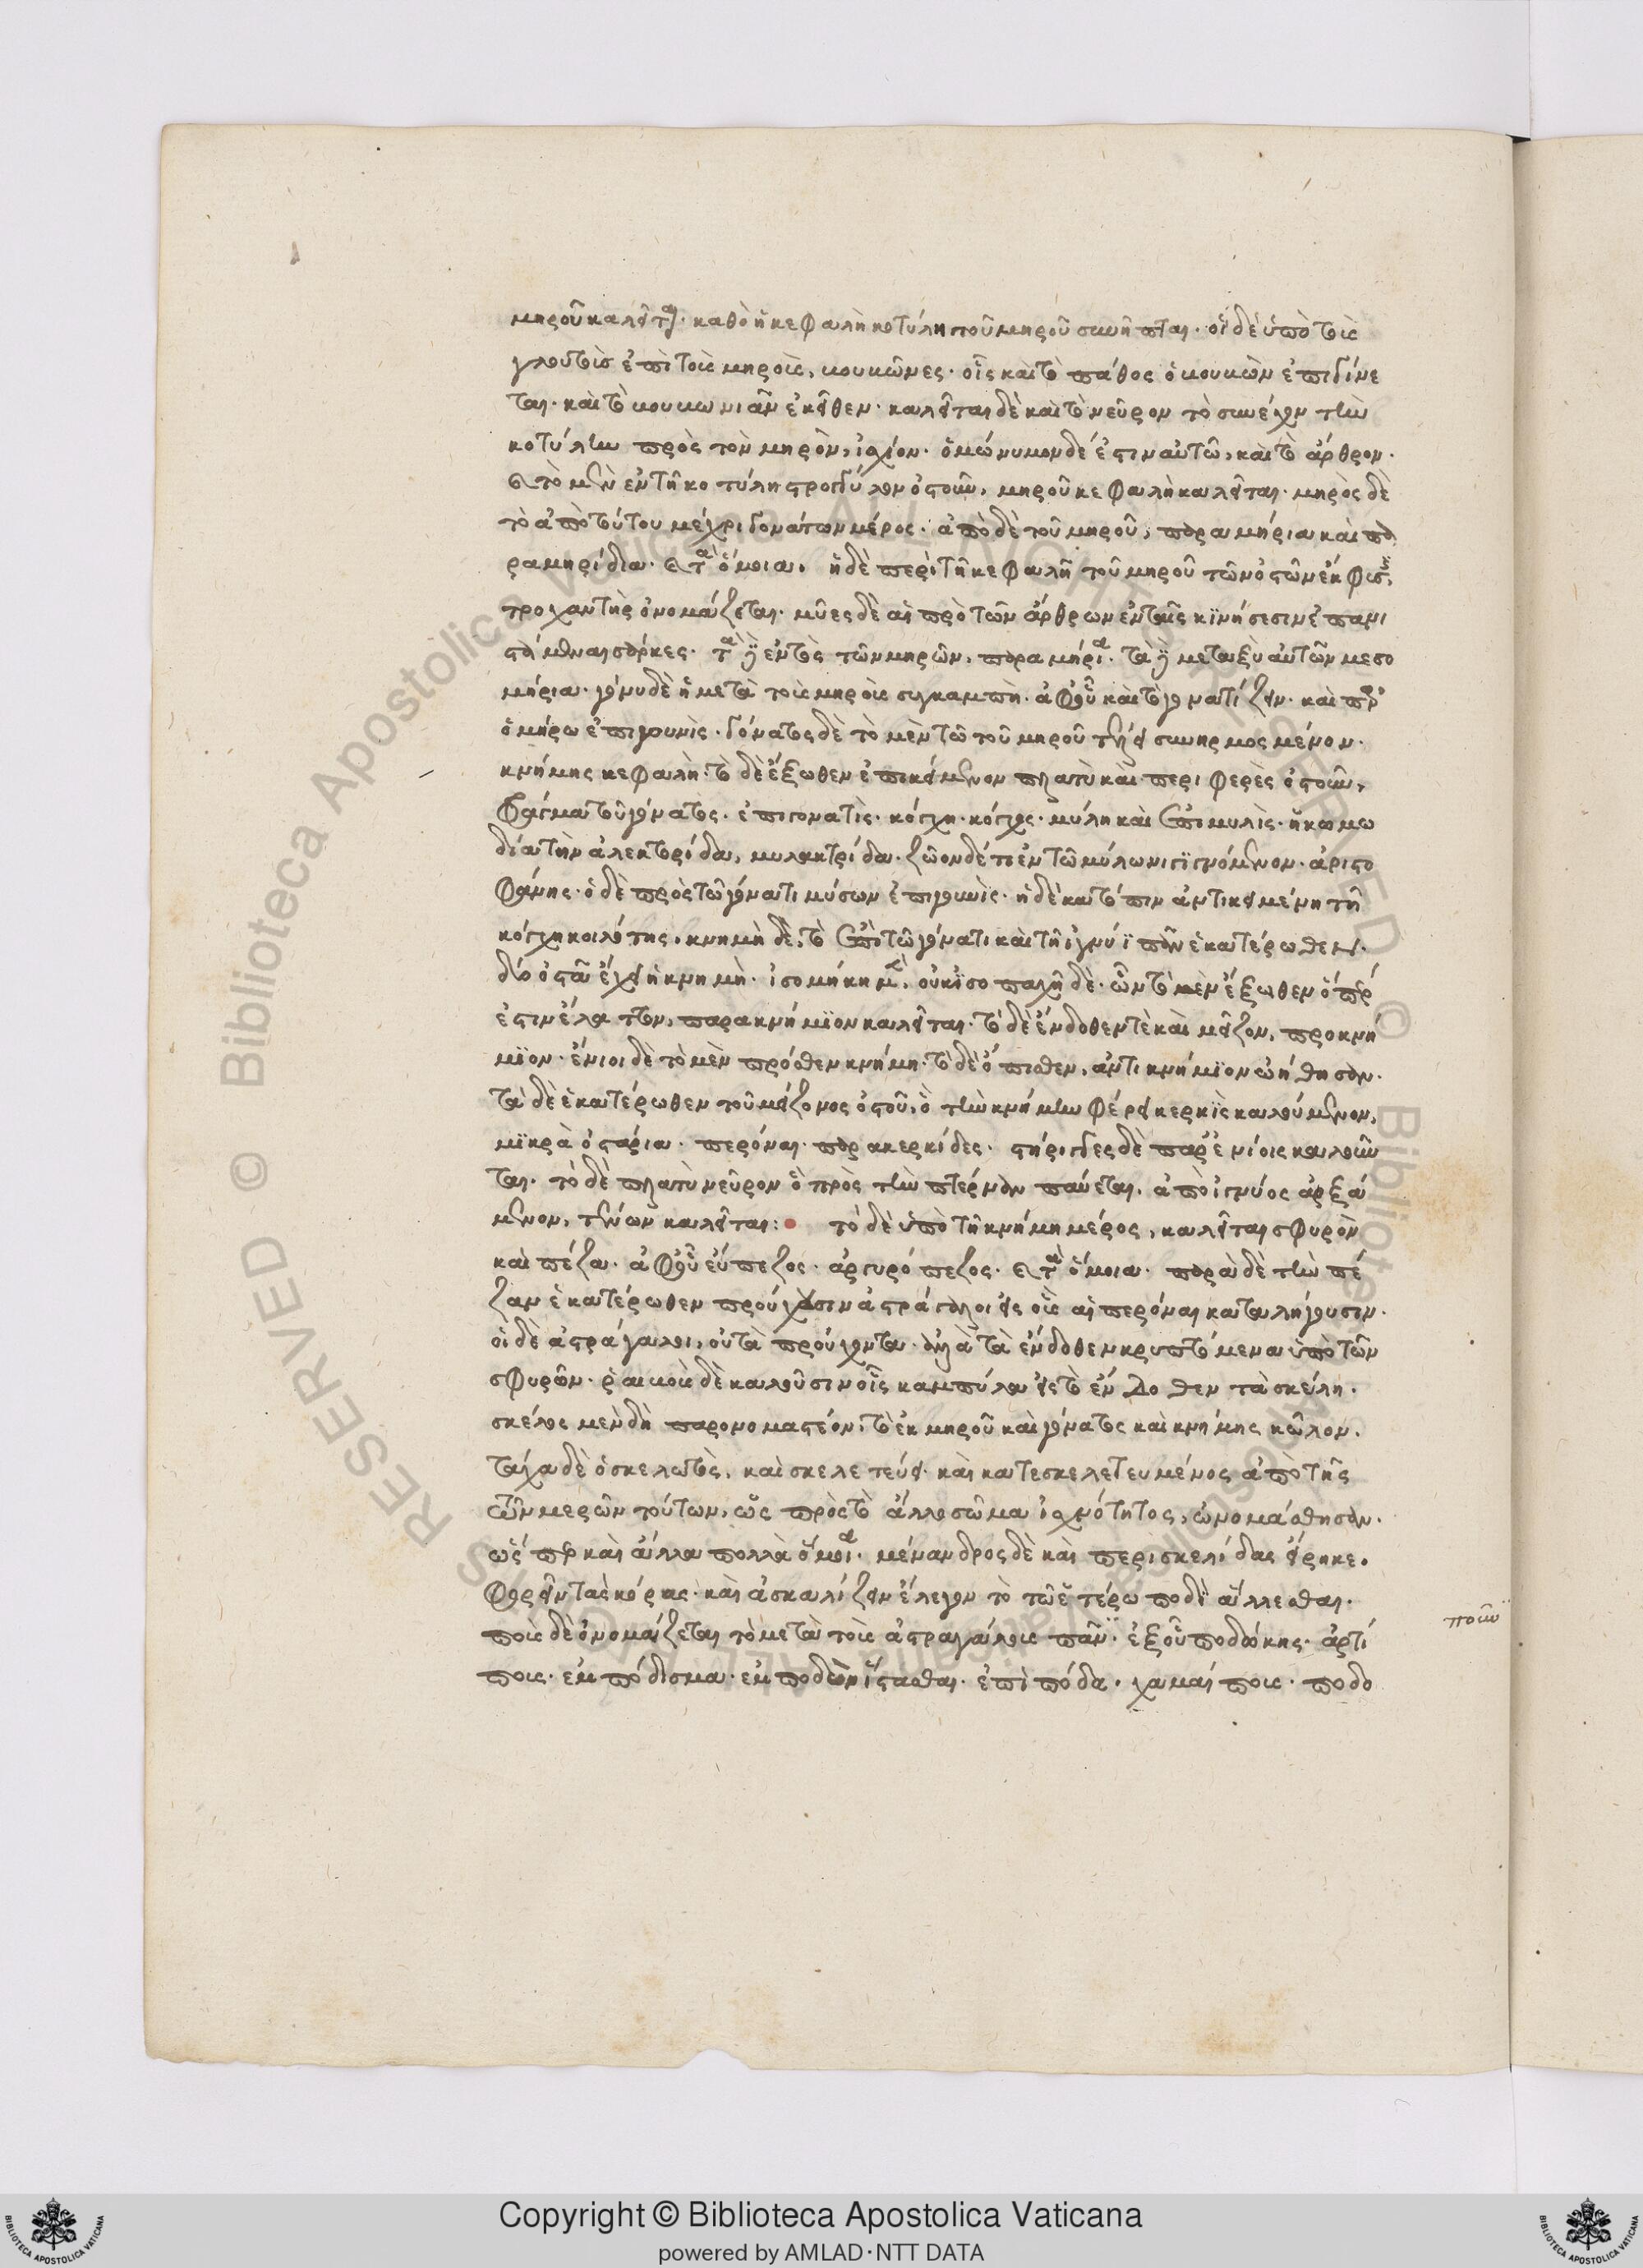 μηροῦ καλεῖται. καθὸ ἡ κεφαλὴ κοτύλη τοῦ μηροῦ συνῆπται. οἱ δὲ ὑπὸ τοῖς
γλουτοῖς ἐπὶ τοῖς μηροῖς, κουκῶνες. οἷς καὶ τὸ πάθος ὁ κουκὼν ἐπιγίνε
ται. καὶ τὸ κουκωνιᾶν ἐκεῖθεν. καλεῖται δὲ καὶ τὸ νεῦρον τὸ συνέχον τὴν
κοτύλην πρὸς τὸν μηρὸν, ἰσχίον. ὁμώνυμον δέ ἐστιν αὐτῶ, καὶ τὸ ἄρθρον.
καὶ τὸ μὲν ἐν τῆ κοτύλη στρογγύλον ὀστοῦν, μηροῦ κεφαλὴ καλεῖται. μηρὸς δὲ
τὸ ἀπὸ τούτου μέχρι γονάτων μέρος. ἀπὸ δὲ τοῦ μηροῦ, παραμήρια καὶ πα
ραμηρίδια. καὶ τὰ ὅμοια. ἡ δὲ περὶ τῆ κεφαλῆ τοῦ μηροῦ τῶν ὀστῶν ἔκφυσις,
τροχαντὴρ ὀνομάζεται. μύες δὲ αἱ πρὸ τῶν ἄρθρων ἐν ταῖς κινήσεσιν ἐπανι
στάμεναι σάρκες. τὰ δὲ ἐντὸς τῶν μηρῶν, παραμήρια. τὰ δὲ μεταξὺ αὐτῶν μεσο
μήρια. γόνυ δὲ ἡ μετὰ τοῖς μηροῖς συγκαμπή. ἀφ' οὗ καὶ τὸ γονατίζειν. καὶ παρ'
ὁμήρω ἐπιγουνὶς. γόνατος δὲ τὸ μὲν τῶ τοῦ μηροῦ τέλει συνηρμοσμένον.
κνήμης κεφαλὴ. τὸ δὲ ἔξωθεν ἐπικείμενον πλατὺ καὶ περιφερὲς ὀστοῦν,
φάγμα τοῦ γόνατος. ἐπιγονατὶς. κόγχη. κόγχος. μύλη καὶ ἐπιμυλὶς. ἡ κωμω
δία τὴν ἀλεκτορίδα, μυλακτρίδα. ζῶον δέ τι ἐν τῶ μύλωνι σιγινόμενον. ἀριστο
φάνης. ὁ δὲ πρὸς τῶ γόνατι μύσων ἐπιγουνὶς. ἡ δὲ κατόπιν ἀντικειμένη τῆ
κόγχη κοιλότης. κνημὴ δὲ, τὸ ἐπὶ τῶ γόνατι καὶ τῆ ἰγνύϊ πᾶν ἑκατέρωθεν.
δύο ὀστᾶ ἔχει ἡ κνημὴ. ἰσομήκη μὲν, οὐκ ἰσοπαχῆ δὲ. ὧν τὸ μὲν ἔξωθεν ὅπερ
ἐστιν ἔλαττον, παρακνήμιον καλεῖται. τὸ δὲ ἔνδοθεν τὲ καὶ μεῖζον, προκνή
μϊον. ἔνιοι δὲ τὸ μὲν πρόσθεν κνήμη. τὸ δὲ ὄπισθεν, ἀντικνήμϊον ὠήθησαν.
τὰ δὲ ἑκατέρωθεν τοῦ μείζονος ὀστοῦ, ὃ τὴν κνήμην φέρει κερκὶς καλούμενον,
μϊκρὰ ὀστάρια. περόναι. παρακερκίδες. στήριγγες δὲ παρ' ἐνίοις καλοῦν
ται. τὸ δὲ πλατὺ νεῦρον ὃ πρὸς τὴν πτέρναν παύεται, ἀπὸ ἰγνύος ἀρξά
μενον, τένων καλεῖται: τὸ δὲ ὑπὸ τῆ κνήμη μέρος, καλεῖται σφυρὸν
καὶ πέζα. ἀφ' οὗ εὔπεζος. ἀργυρόπεζος. καὶ τὰ ὅμοια. παρὰ δὲ τὴν πέ
ζαν ἑκατέρωθεν προύχουσιν ἀστράγαλοι εἰς οὓς αἱ περόναι καταλήγουσιν.
οἱ δὲ ἀστράγαλοι, οὐ τὰ προύχοντα. ἀλλὰ τὰ ἔνδοθεν κρυπτόμενα ὑπὸ τῶν
σφυρῶν. ῥαικοὺς δὲ καλοῦσιν οἷς καμπύλα εἰς τὸ ἔνδοθεν τὰ σκέλη.
σκέλος μὲν δὴ παρονομαστέον, τὸ ἐκ μηροῦ καὶ γόνατος καὶ κνήμης κῶλον.
τάχα δὲ ὁ σκελετὸς, καὶ σκελετεύει. καὶ κατεσκελετευμένος ἀπὸ τῆς
τῶν μερῶν τούτων, ὡς πρὸς τὸ ἄλλο σῶμα ἰσχνότητος, ὠνομάσθησαν.
ὥσπερ καὶ ἄλλα πολλὰ ὅμοια. μένανδρος δὲ καὶ περισκελίδας εἴρηκε.
φορεῖν τὰς κόρας. καὶ ἀσκαλίζειν ἔλεγον τὸ τῶ ἑτέρω ποδὶ ἅλλεσθαι.
ποῖς δὲ ὀνομάζεται τὸ μετὰ τοῖς ἀστραγάλοις πᾶν. ἐξ οὗ ποδώκης. ἀρτί
ποις. ἐμπόδισμα. ἐμποδὼν ἵστασθαι. ἐπὶ πόδα. χαμαίποις. ποδο
Copyright © Biblioteca Apostolica Vaticana
powered by AMLAD·NTT DATA